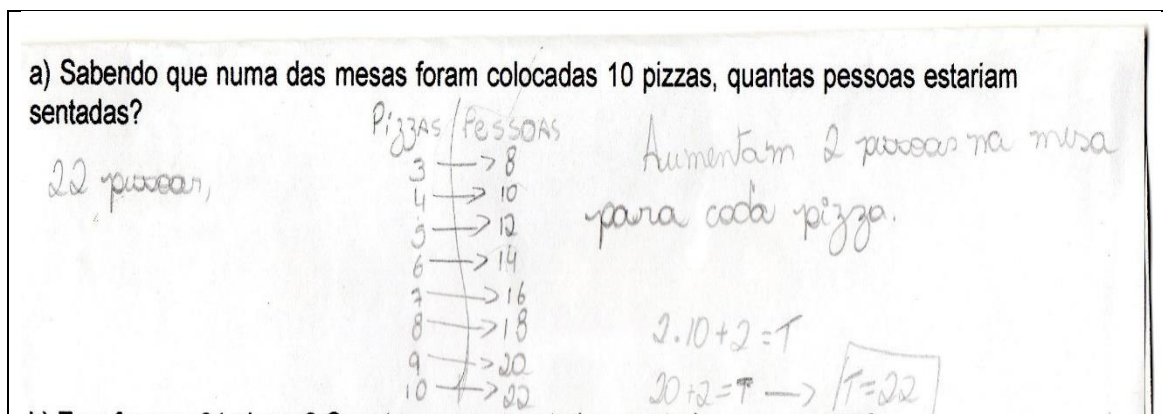 a) Sabendo que numa das mesas foram colocadas 10 pizzas, quantas pessoas estariam
sentadas?
22 pessoas,
Pizzas Pessoas
3 → 8
4 → 10
5 → 12
6 → 14
7 → 16
8 → 18
9 → 20
10 → 22
Aumentam 2 pessoas na mesa
para cada pizza.
2.10+2=T
20+2=T → T=22